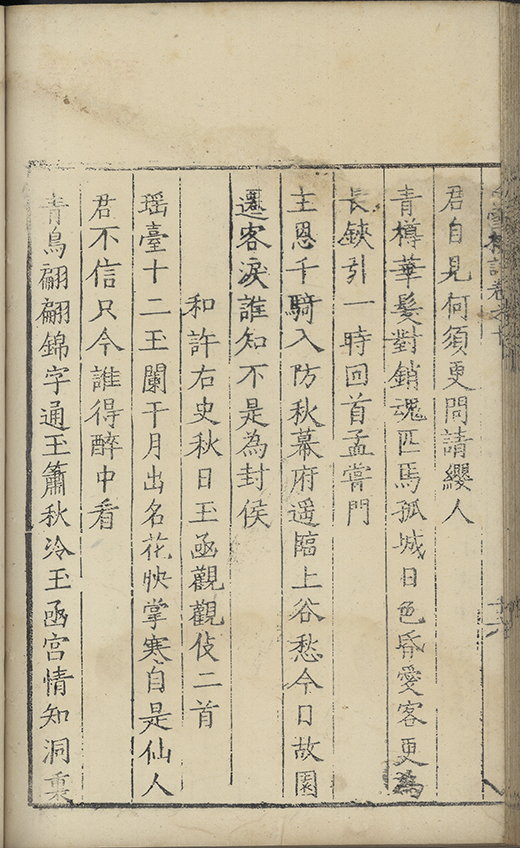 君自見何須更問請纓人
青樽華髮對銷魂匹馬孤城日色昏愛客更為
長鋏引一時回首孟嘗門
主恩千騎入防秋幕府遥臨上谷愁今日故園
遷客淚誰知不是為封侯
和許右史秋日玉函觀觀伎二首
瑶臺十二玉闌干月出名花怏掌寒自是仙人
君不信只今誰得醉中看
青鳥翩翩錦字通玉簫秋冷玉函宫情知洞裏